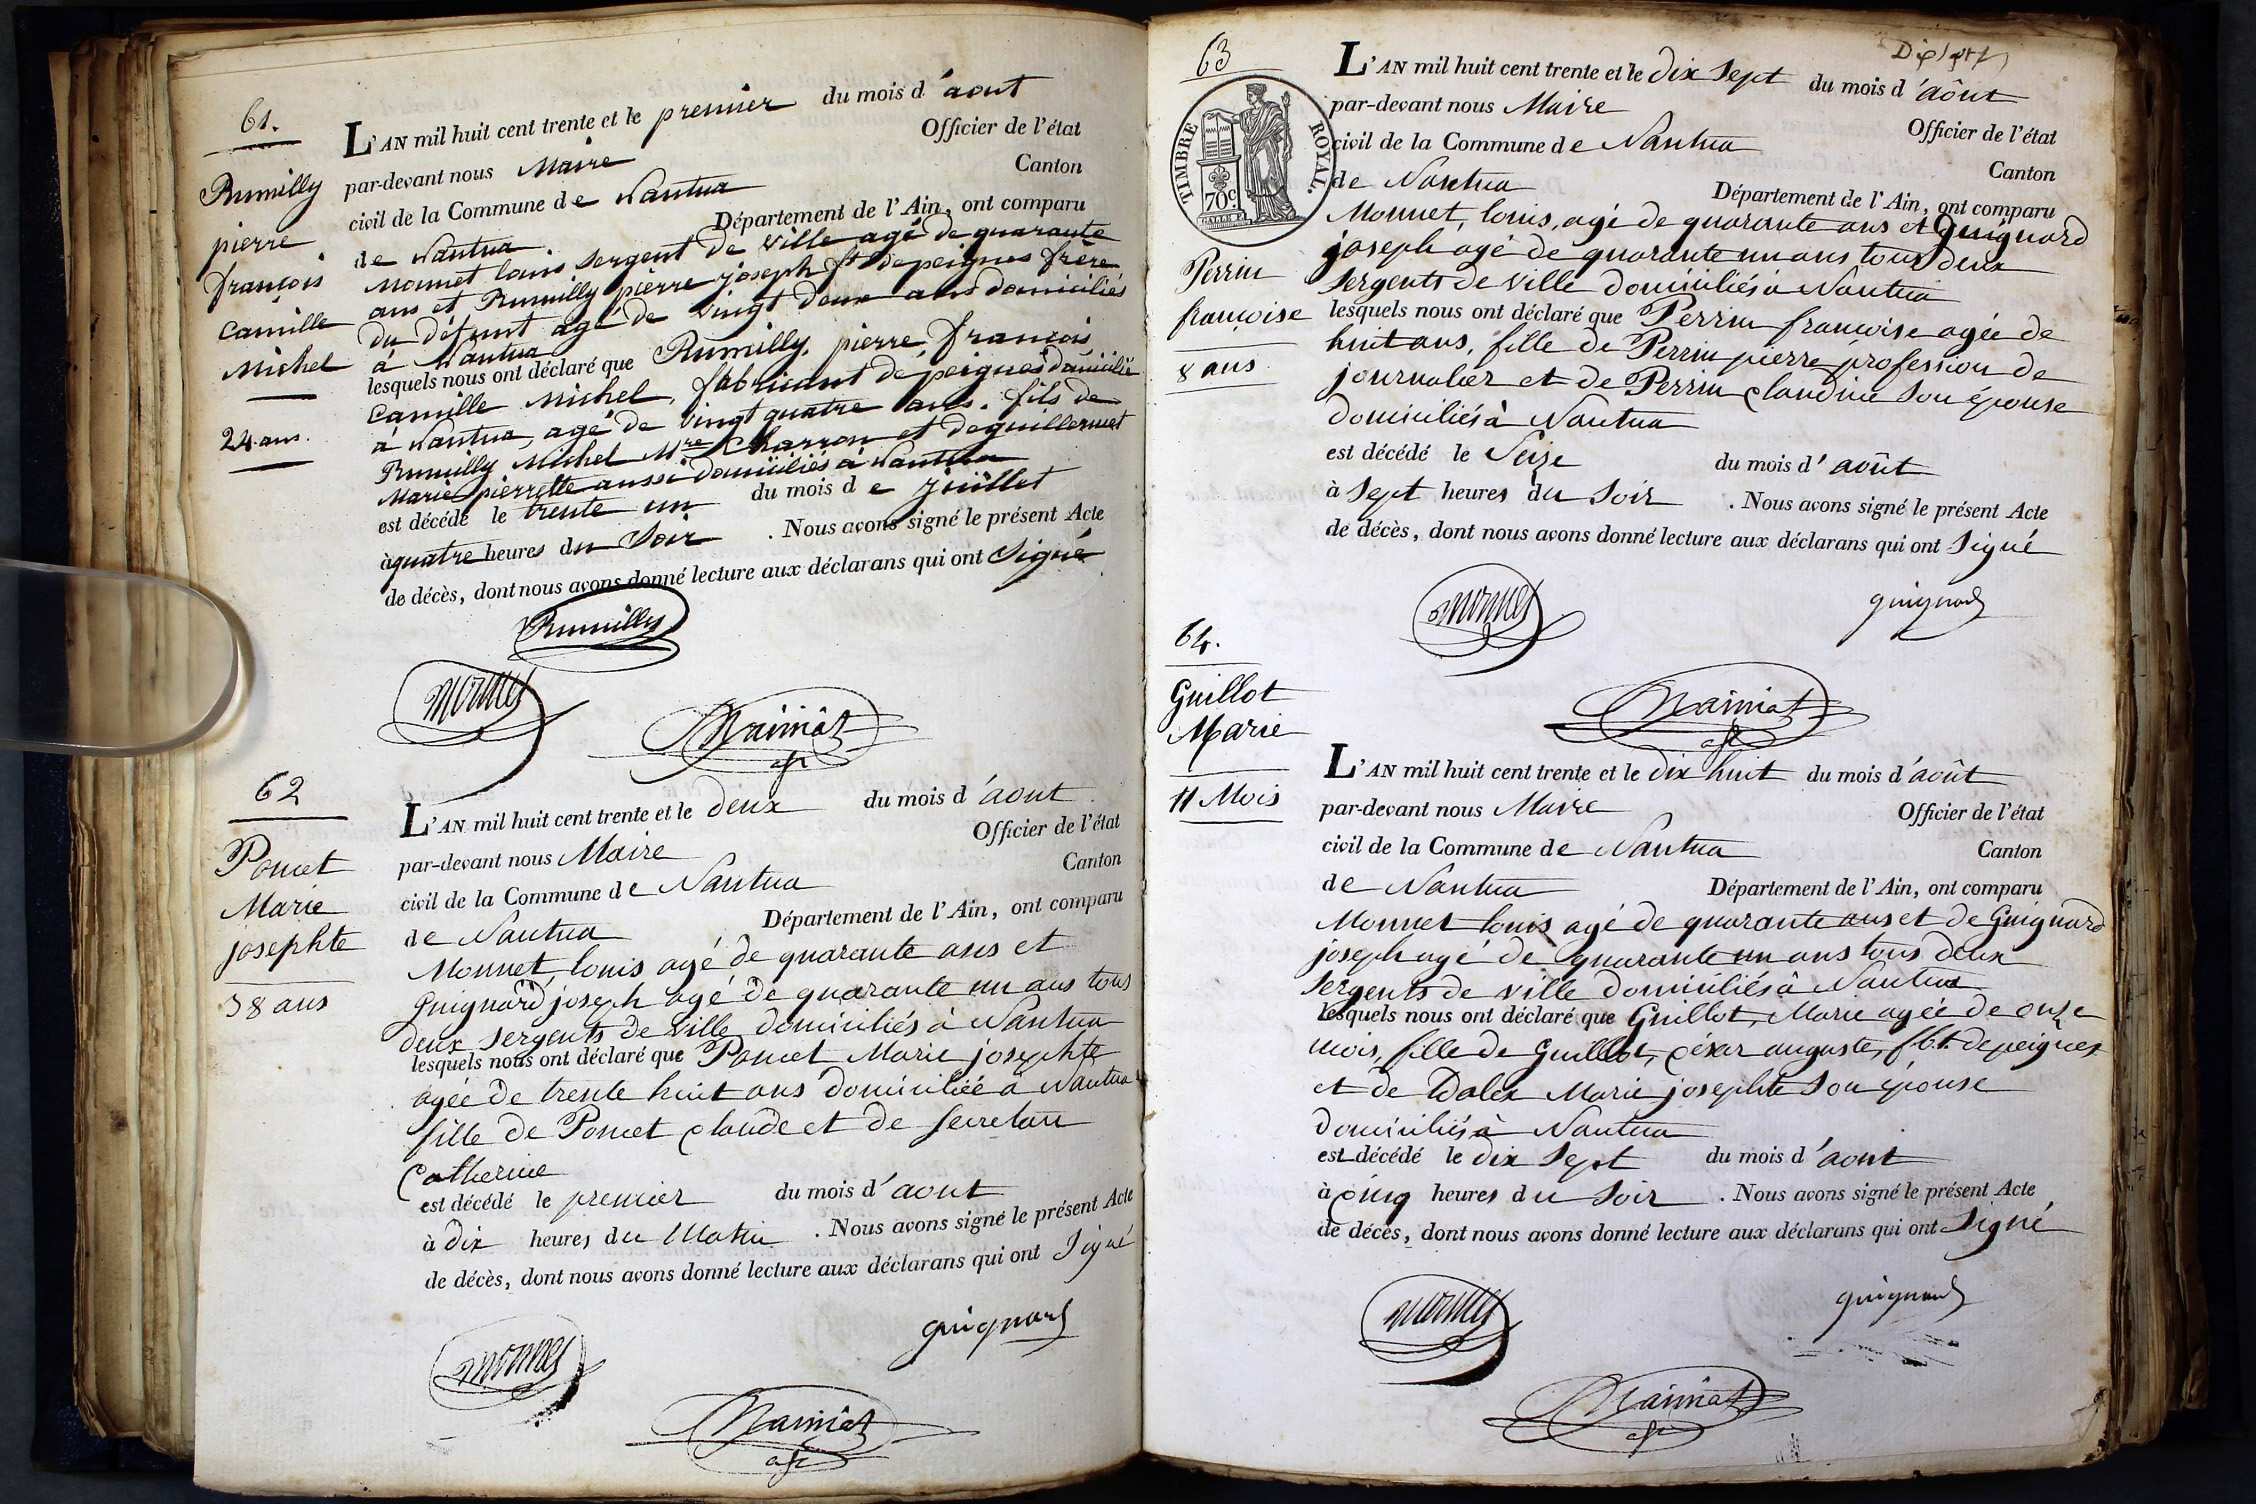 61.
Rumilly
pierre
françois
camille
Michel
24 ans.
L'AN mil huit cent trente et le premier du mois d'août
par-devant nous Maire Officier de l'état
civil de la Commune de Nantua Canton
de Nantua Département de l'Ain, ont comparu
Monnet louis sergent de ville agé de quarante
ans et Rumilly pierre joseph ft de peignes frère
du défunt agé de vingt deux ans domiciliés
à Nantua
lesquels nous ont déclaré que Rumilly, pierre françois
camille Michel, fabricant de peignes domicilié
à Nantua, agé de vingt quatre ans. fils de
Rumilly Michel Mre Charron et de guillermet
Marie pierrette aussi domiciliés à Nantua
est décédé le trente un du mois de juillet
à quatre heures du Soir . Nous avons signé le présent Acte
de décès, dont nous avons donné lecture aux déclarans qui ont Signé
Rumilly
monnet
62
Poncet
Marie
josephte
38 ans
L'AN mil huit cent trente et le deux du mois d'août
par-devant nous Maire Officier de l'état
civil de la Commune de Nantua Canton
de Nantua Département de l'Ain, ont comparu
Monnet, louis agé de quarante ans et
Guignard joseph agé de quarante un ans tous
deux sergents de ville domiciliés à Nantua
lesquels nous ont déclaré que Poncet Marie josephte
agée de trente huit ans domiciliée à Nantua
fille de Poncet claude et de Secretan
Catherine
est décédé le premier du mois d'août
à dix heures du Matin . Nous avons signé le présent Acte
de décès, dont nous avons donné lecture aux déclarans qui ont Signé
guignard
monnet
63
TIMBRE ROYAL.
70c.
Perrin
françoise
8 ans
L'AN mil huit cent trente et le dix Sept du mois d'août
par-devant nous Maire Officier de l'état
civil de la Commune de Nantua Canton
de Nantua Département de l'Ain, ont comparu
Monnet, louis, agé de quarante ans et Guignard
joseph agé de quarante un ans tous deux
sergents de ville domiciliés à Nantua
lesquels nous ont déclaré que Perrin françoise agée de
huit ans, fille de Perrin pierre profession de
journalier et de Perrin claudine Son épouse
domiciliés à Nantua
est décédé le Seize du mois d'août
à Sept heures du Soir . Nous avons signé le présent Acte
de décès, dont nous avons donné lecture aux déclarans qui ont Signé
monnet guignard
64.
Guillot
Marie
11 Mois
L'AN mil huit cent trente et le dix huit du mois d'août
par-devant nous Maire Officier de l'état
civil de la Commune de Nantua Canton
de Nantua Département de l'Ain, ont comparu
Monnet louis agé de quarante ans et de Guignard
joseph agé de quarante un ans tous deux
Sergents de ville domiciliés à Nantua
lesquels nous ont déclaré que Guillot, Marie agée de onze
mois, fille de Guillot, césar auguste, fbt. de peignes
et de Dalex Marie josephte Son épouse
domiciliés à Nantua
est décédé le dix Sept du mois d'août
à cinq heures du Soir . Nous avons signé le présent Acte
de décès, dont nous avons donné lecture aux déclarans qui ont Signé
guignard
monnet